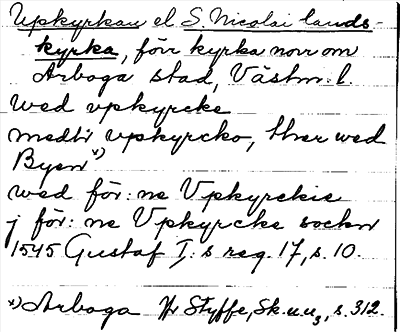 Upkyrkan el S. Nicolai lands-
kyrka, förr kyrka norr om
Arboga stad, Västm. l.
Wed vpkyrcke
medtt vpkyrcko, ther wed
Byenx)
wed för: ne Vpkyrckie
j för: ne Vpkyrcke sockn
1545 Gustaf I:s reg. 17, s. 10.
x) Arboga Jfr Styffe, Sk. u. u3, s. 312.